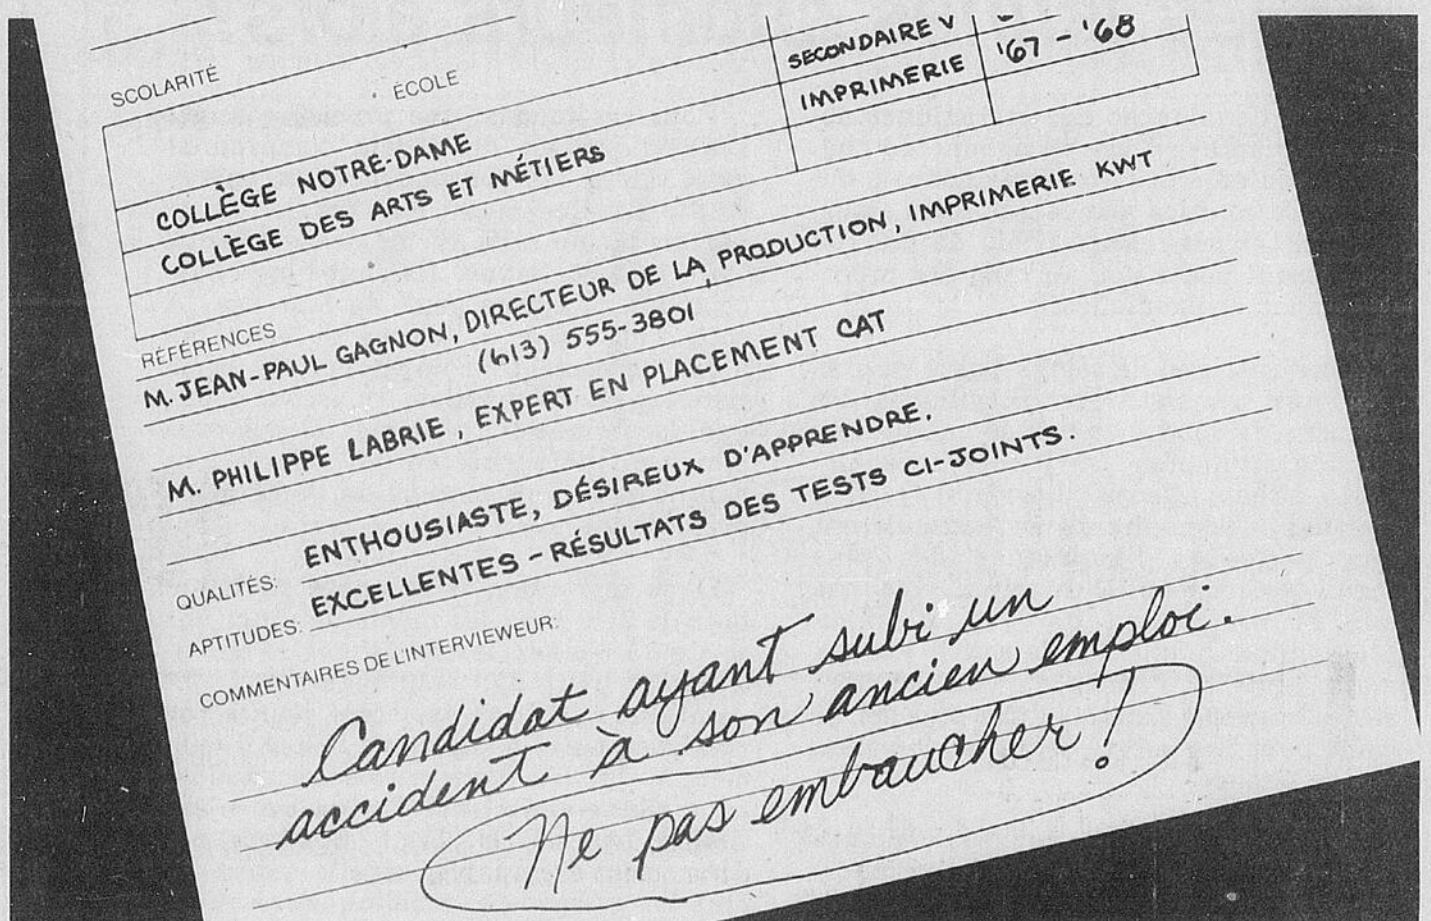 SCOLARITÉ
ÉCOLE
SECONDAIRE V
IMPRIMERIE '67 - '68
COLLÈGE NOTRE-DAME
COLLÈGE DES ARTS ET MÉTIERS
RÉFÉRENCES
M. JEAN-PAUL GAGNON, DIRECTEUR DE LA PRODUCTION, IMPRIMERIE KWT
(613) 555-3801
M. PHILIPPE LABRIE, EXPERT EN PLACEMENT CAT
QUALITÉS: ENTHOUSIASTE, DÉSIREUX D'APPRENDRE.
APTITUDES: EXCELLENTES - RÉSULTATS DES TESTS CI-JOINTS.
COMMENTAIRES DE L'INTERVIEWEUR:
Candidat ayant subi un
accident à son ancien emploi.
Ne pas embaucher!